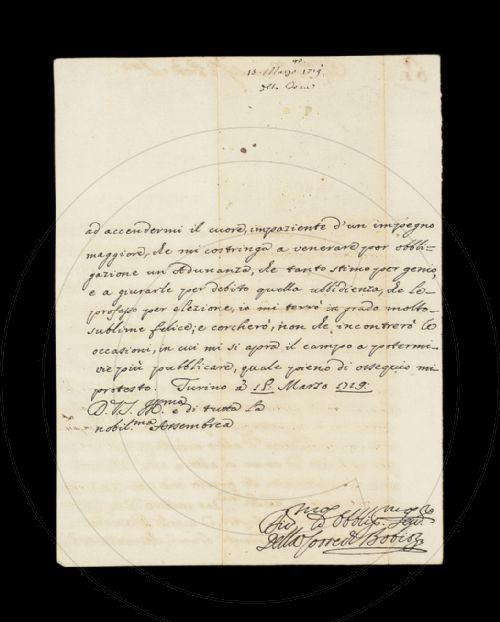 13. Marzo 1719
ad accendermi il cuore, impaziente d'un impegno
maggiore, che mi costringa a venerare per obbli=
gazione un Adunanza, che tanto stimo per genio,
e a giurarle per debito quella ubbidienza, che le
professo per elezione, io mi terrò in grado molto
sublime felice; e cercherò, non che incontrerò le
occasioni, in cui mi si apra il campo a potermi
vie più pubblicare, quale pieno di ossequio mi
protesto. Turino a 15. Marzo 1719.
D. V. S. Ill.ma e di tutta la
nobil.ma Assemblea
Obblig.mo
Della Torre di Bobio